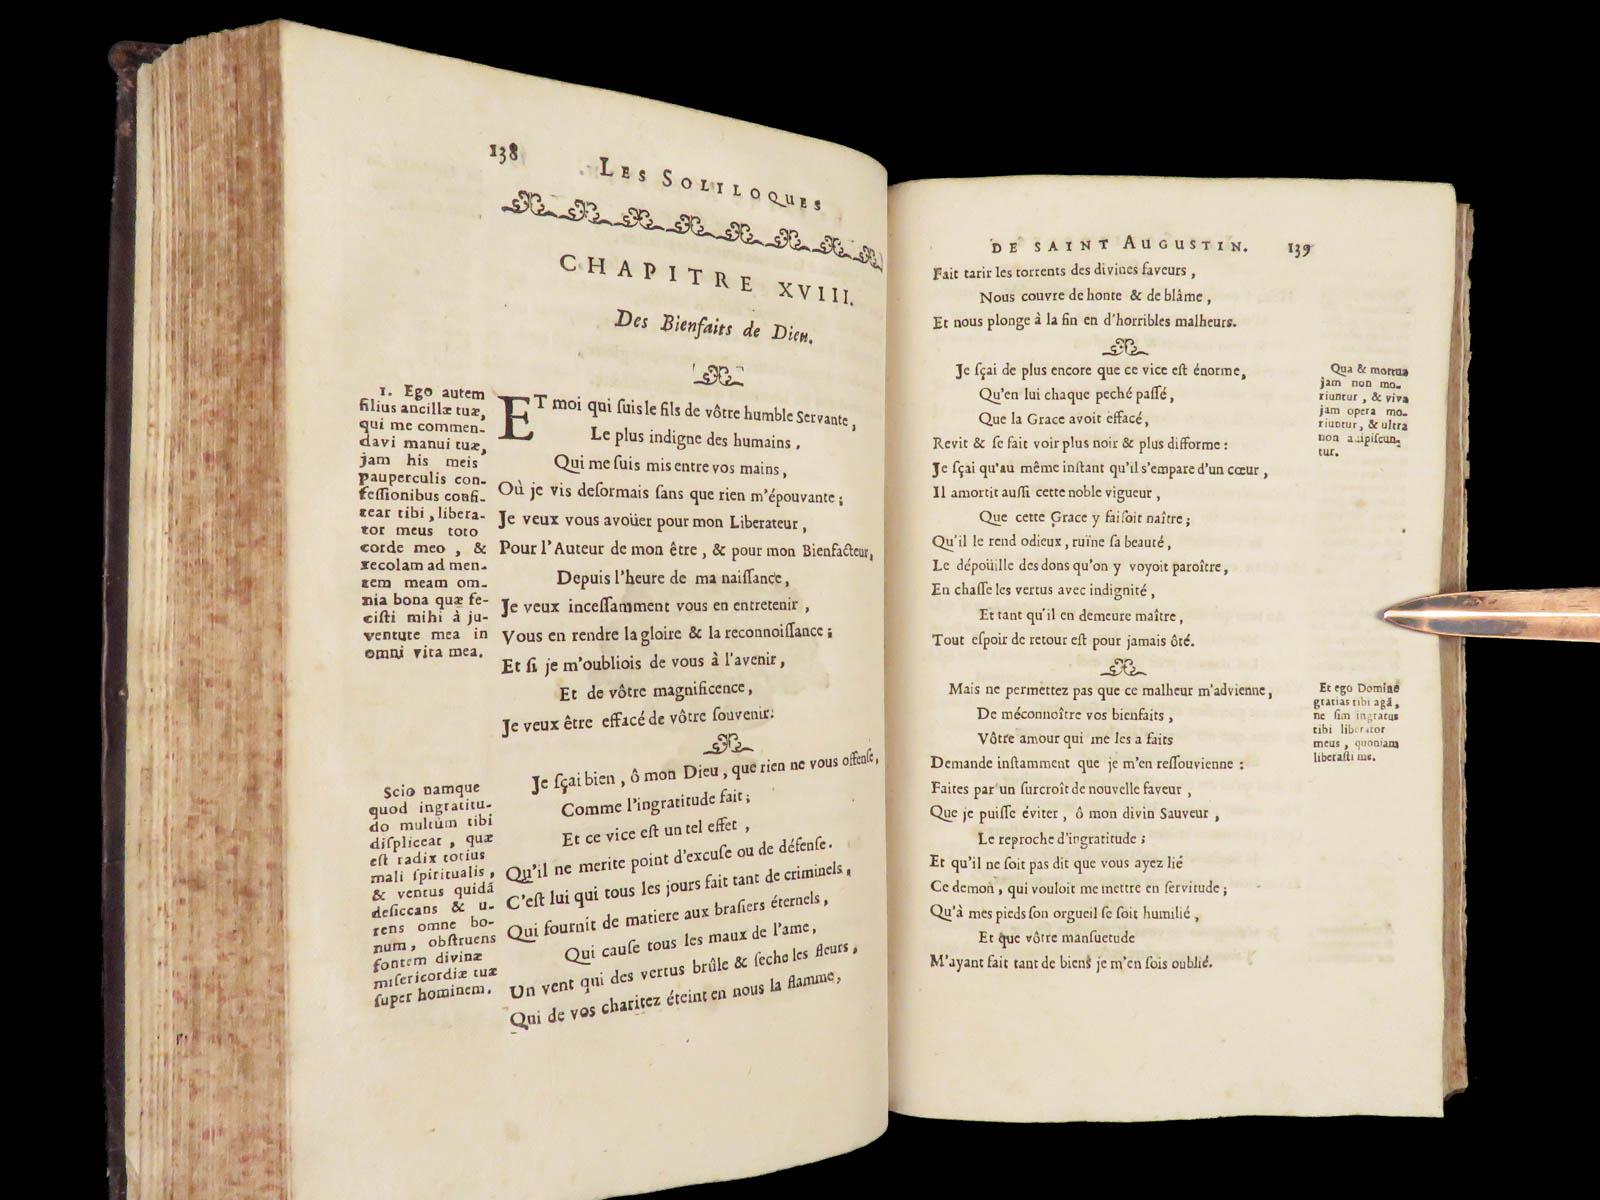 138
LES SOLILOQUES
CHAPITRE XVIII.
Des Bienfaits de Dieu.
1. Ego autem
filius ancillæ tuæ,
qui me commen-
davi manui tuæ,
jam his meis
pauperculis con-
feſſionibus confi-
tear tibi, libera-
tor meus toto
corde meo, &
recolam ad men-
tem meam om-
nia bona quæ fe-
ciſti mihi à ju-
ventute mea in
omni vita mea.
ET moi qui ſuis le fils de vôtre humble Servante,
Le plus indigne des humains,
Qui me ſuis mis entre vos mains,
Où je vis deſormais ſans que rien m'épouvante;
Je veux vous avoüer pour mon Liberateur,
Pour l'Auteur de mon être, & pour mon Bienfacteur,
Depuis l'heure de ma naiſſance,
Je veux inceſſamment vous en entretenir,
Vous en rendre la gloire & la reconnoiſſance;
Et ſi je m'oubliois de vous à l'avenir,
Et de vôtre magnificence,
Je veux être effacé de vôtre ſouvenir.
Scio namque
quod ingratitu-
do multùm tibi
diſpliceat, quæ
eſt radix totius
mali ſpiritualis,
& ventus quidã
deſiccans & u-
rens omne bo-
num, obſtruens
fontem divinæ
miſericordiæ tuæ
ſuper hominem.
Je ſçai bien, ô mon Dieu, que rien ne vous offenſe,
Comme l'ingratitude fait;
Et ce vice eſt un tel effet,
Qu'il ne merite point d'excuſe ou de défenſe.
C'eſt lui qui tous les jours fait tant de criminels,
Qui fournit de matiere aux braſiers éternels,
Qui cauſe tous les maux de l'ame,
Un vent qui des vertus brûle & ſeche les fleurs,
Qui de vos charitez éteint en nous la flamme,
DE SAINT AUGUSTIN. 139
Fait tarir les torrents des divines faveurs,
Nous couvre de honte & de blâme,
Et nous plonge à la fin en d'horribles malheurs.
Je ſçai de plus encore que ce vice eſt énorme,
Qu'en lui chaque peché paſſé,
Que la Grace avoit effacé,
Revit & ſe fait voir plus noir & plus difforme:
Je ſçai qu'au même inſtant qu'il s'empare d'un cœur,
Il amortit auſſi cette noble vigueur,
Que cette Grace y faiſoit naître;
Qu'il le rend odieux, ruïne ſa beauté,
Le dépoüille des dons qu'on y voyoit paroître,
En chaſſe les vertus avec indignité,
Et tant qu'il en demeure maître,
Tout eſpoir de retour eſt pour jamais ôté.
Qua & mortua
jam non mo-
riuntur, & viva
jam opera mo-
riuntur, & ultra
non adipiſcun-
tur.
Mais ne permettez pas que ce malheur m'advienne,
De méconnoître vos bienfaits,
Vôtre amour qui me les a faits
Demande inſtamment que je m'en reſſouvienne:
Faites par un ſurcroît de nouvelle faveur,
Que je puiſſe éviter, ô mon divin Sauveur,
Le reproche d'ingratitude;
Et qu'il ne ſoit pas dit que vous ayez lié
Ce demon, qui vouloit me mettre en ſervitude;
Qu'à mes pieds ſon orgueil ſe ſoit humilié,
Et que vôtre manſuetude
M'ayant fait tant de biens je m'en ſois oublié.
Et ego Domine
gratias tibi agã,
ne ſim ingratus
tibi liberator
meus, quoniam
liberaſti me.